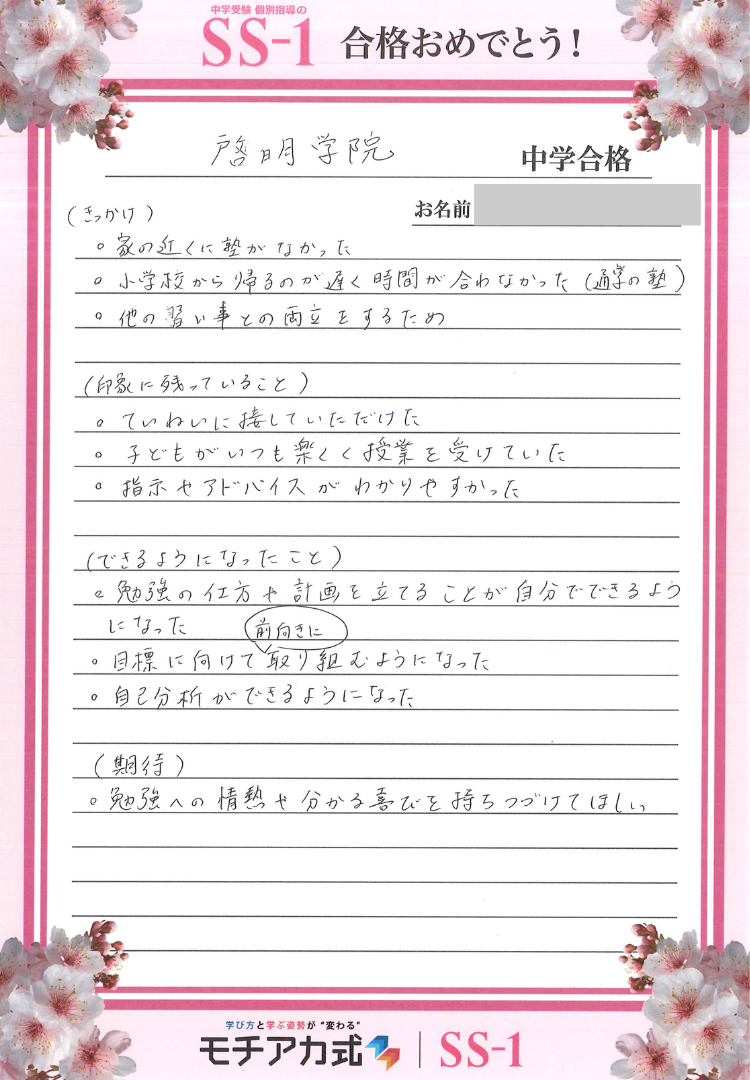 中学受験 個別指導の
SS-1 合格おめでとう！
啓明学院 中学合格
お名前
(きっかけ)
。家の近くに塾がなかった
。小学校から帰るのが遅く時間が合わなかった(通常の塾)
。他の習い事との両立をするため
(印象に残っていること)
。ていねいに接していただけた
。子どもがいつも楽しく授業を受けていた
。指示やアドバイスがわかりやすかった
(できるようになったこと)
。勉強の仕方や計画を立てることが自分でできるよう
になった
前向きに
。目標に向けて取り組むようになった
。自己分析ができるようになった
(期待)
。勉強への情熱や分かる喜びを持ちつづけてほしい
学び方と学ぶ姿勢が“変わる”
モチアカ式 | SS-1